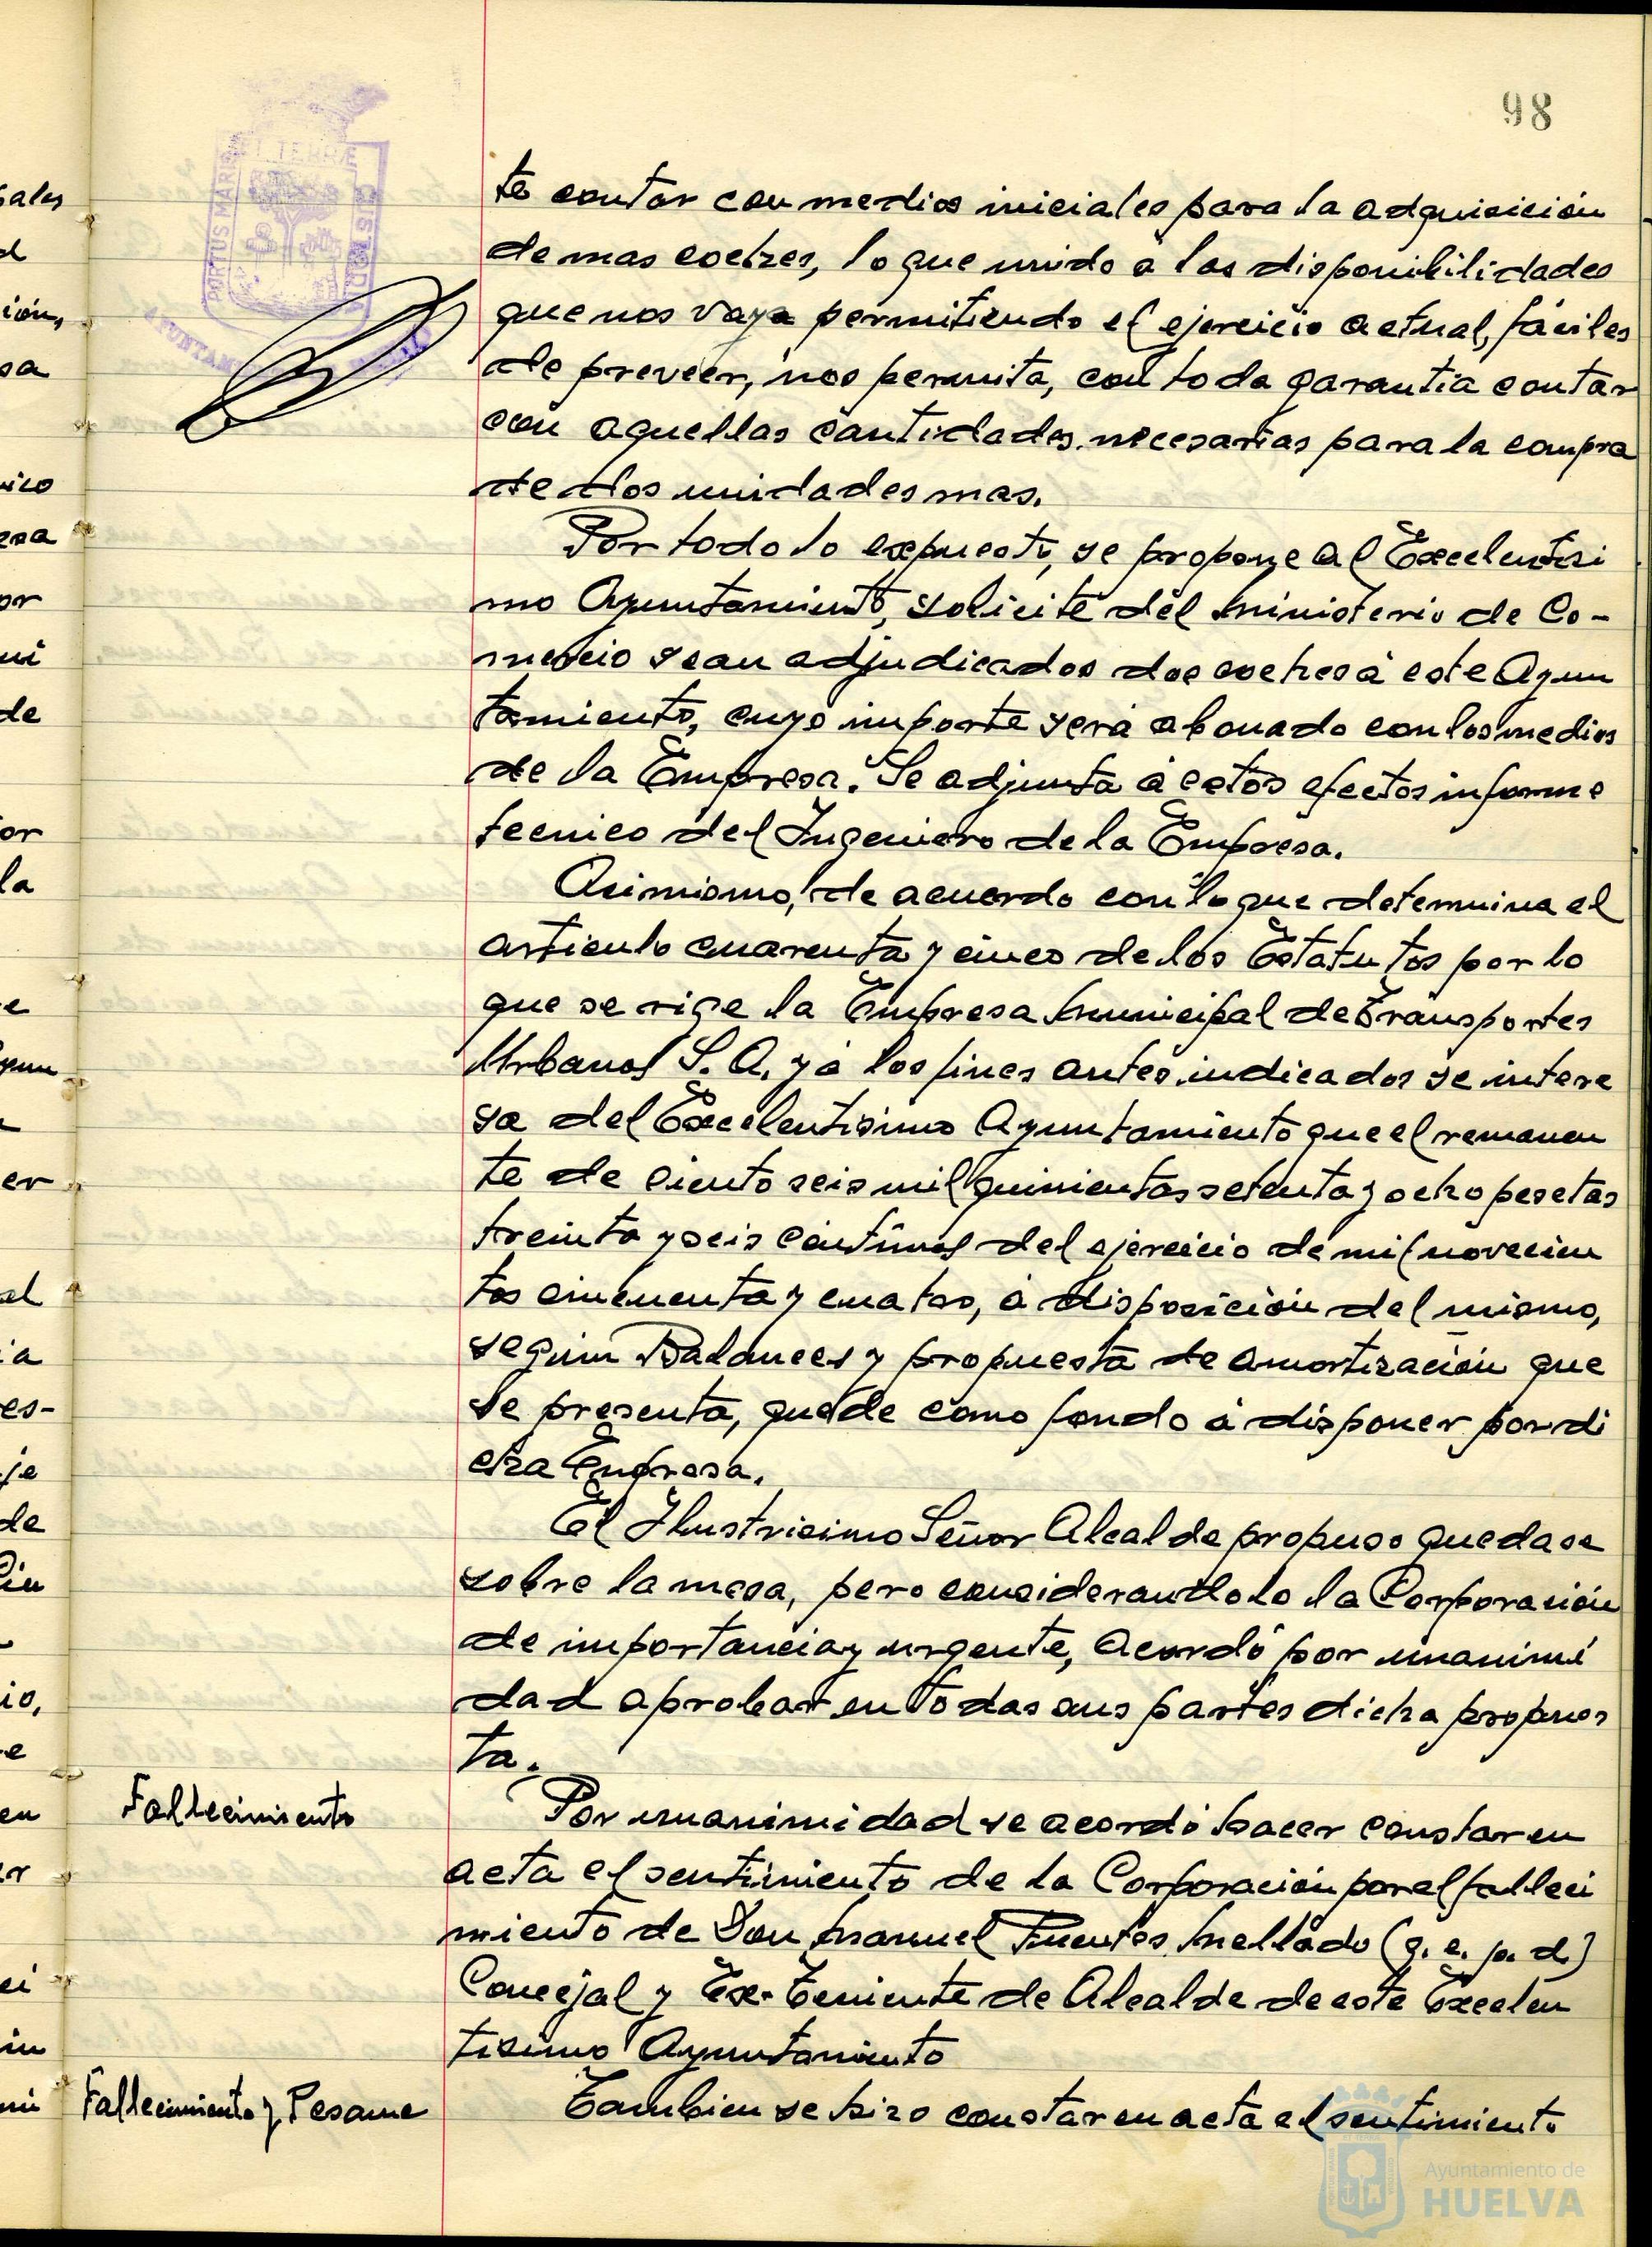 98
te contar con medios iniciales para la adquisición
de mas coches, lo que unido a las disponibilidades
que nos vaya permitiendo el ejercicio actual, fáciles
de preveer, nos permita, con toda garantia contar
con aquellas cantidades necesarias para la compra
de dos unidades mas.
Por todo lo expuesto, se propone al Excelentisi
mo Ayuntamiento, solicite del Ministerio de Co-
mercio sean adjudicados dos coches á este Ayun
tamiento, cuyo importe será abonado con los medios
de la Empresa. Se adjunta á estos efectos informe
tecnico del Ingeniero de la Empresa.
Asimismo, de acuerdo con lo que determina el
articulo cuarenta y cinco de los Estatutos por lo
que se rige la Empresa Municipal de Transportes
Urbanos S. A. y á los fines antes indicados se intere
sa del Excelentisimo Ayuntamiento que el remanen
te de ciento seis mil quinientas setenta y ocho pesetas
treinta y seis céntimos del ejercicio de mil novecien
tos cincuenta y cuatro, á disposición del mismo,
según Balances y propuesta de amortización que
se presenta, quede como fondo á disponer por di
cha Empresa.
El Ilustrisimo Señor Alcalde propuso quedase
sobre la mesa, pero considerandolo la Corporación
de importancia y urgente, acordó por unanimi
dad aprobar en todas sus partes dicha propues
ta.
Fallecimiento
Por unanimidad se acordó hacer constar en
acta el sentimiento de la Corporación por el falleci
miento de Don Manuel Fuentes Mellado (q. e. p. d)
Concejal y Ex-Teniente de Alcalde de este Excelen
tisimo Ayuntamiento
Fallecimiento y Pesame
Tambien se hizo constar en acta el sentimiento
PORTUS MARIS ET TERRÆ CUSTODIA
Ayuntamiento de
HUELVA